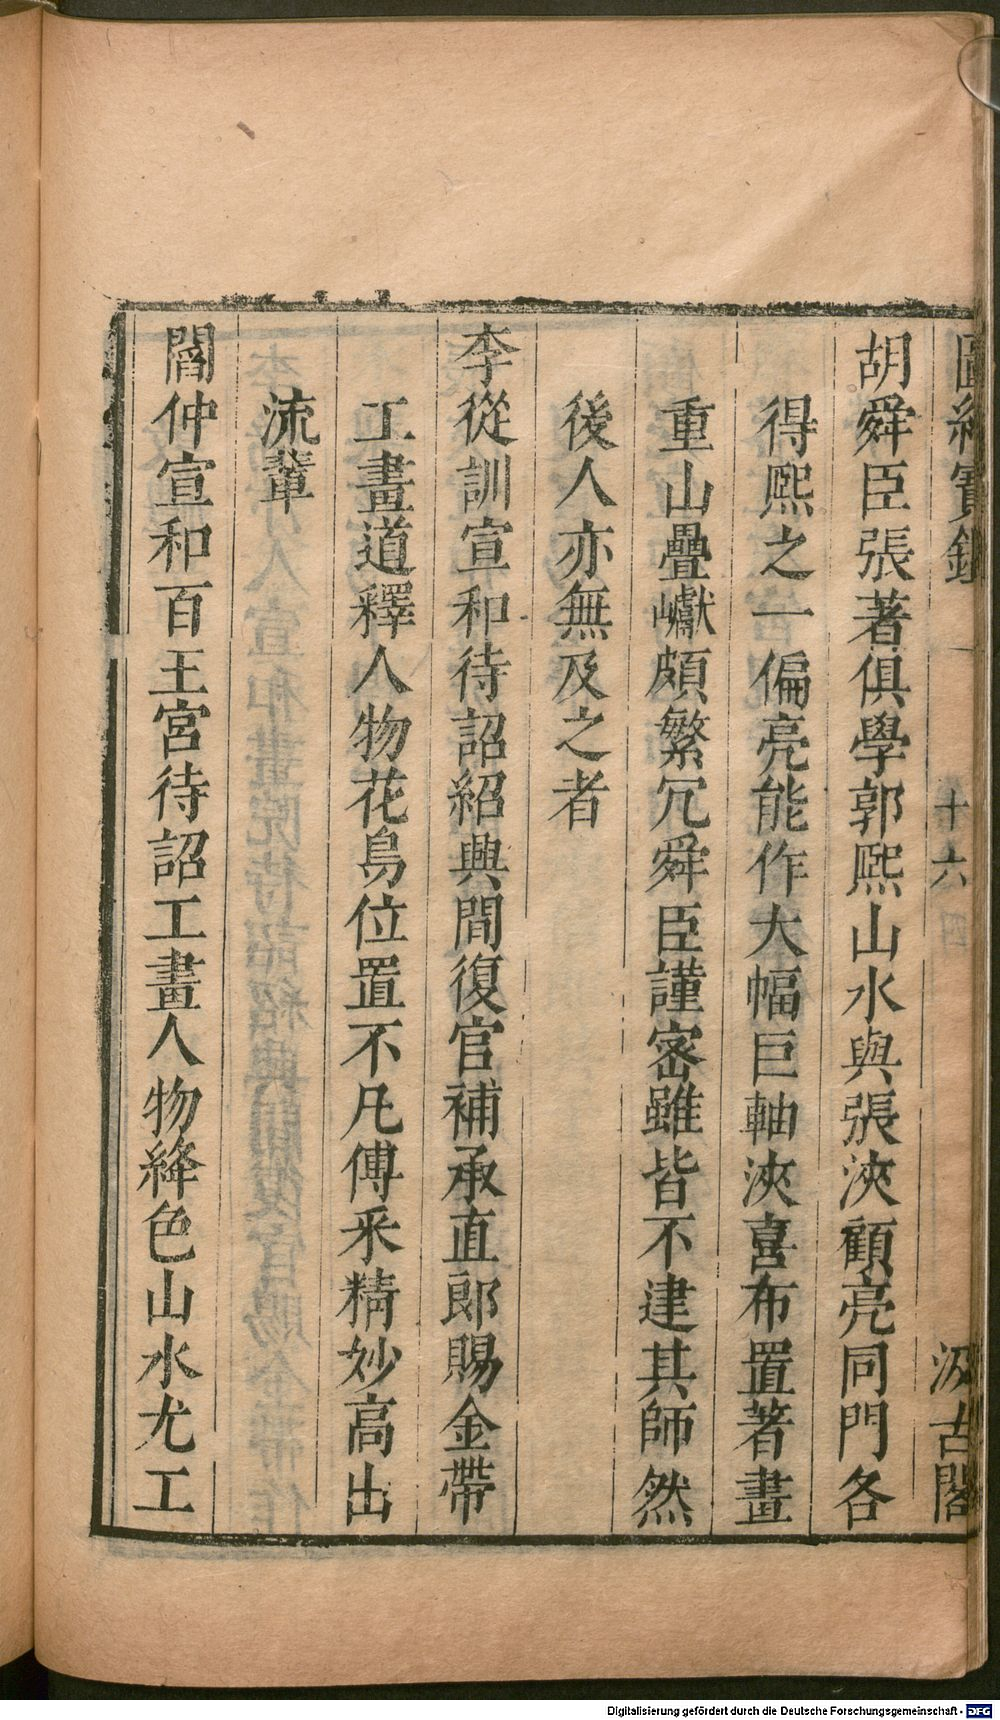 圖繪寶鑑
十六
汲古閣
胡舜臣張著俱學郭熙山水與張浹顧亮同門各
得熙之一偏亮能作大幅巨軸浹喜布置著畫
重山疊巘頗繁冗舜臣謹密雖皆不逮其師然
後人亦無及之者
李從訓宣和待詔紹興間復官補承直郎賜金帶
工畫道釋人物花鳥位置不凡傅采精妙高出
流輩
閻仲宣和百王宮待詔工畫人物絳色山水尤工
Digitalisierung gefördert durch die Deutsche Forschungsgemeinschaft - DFG